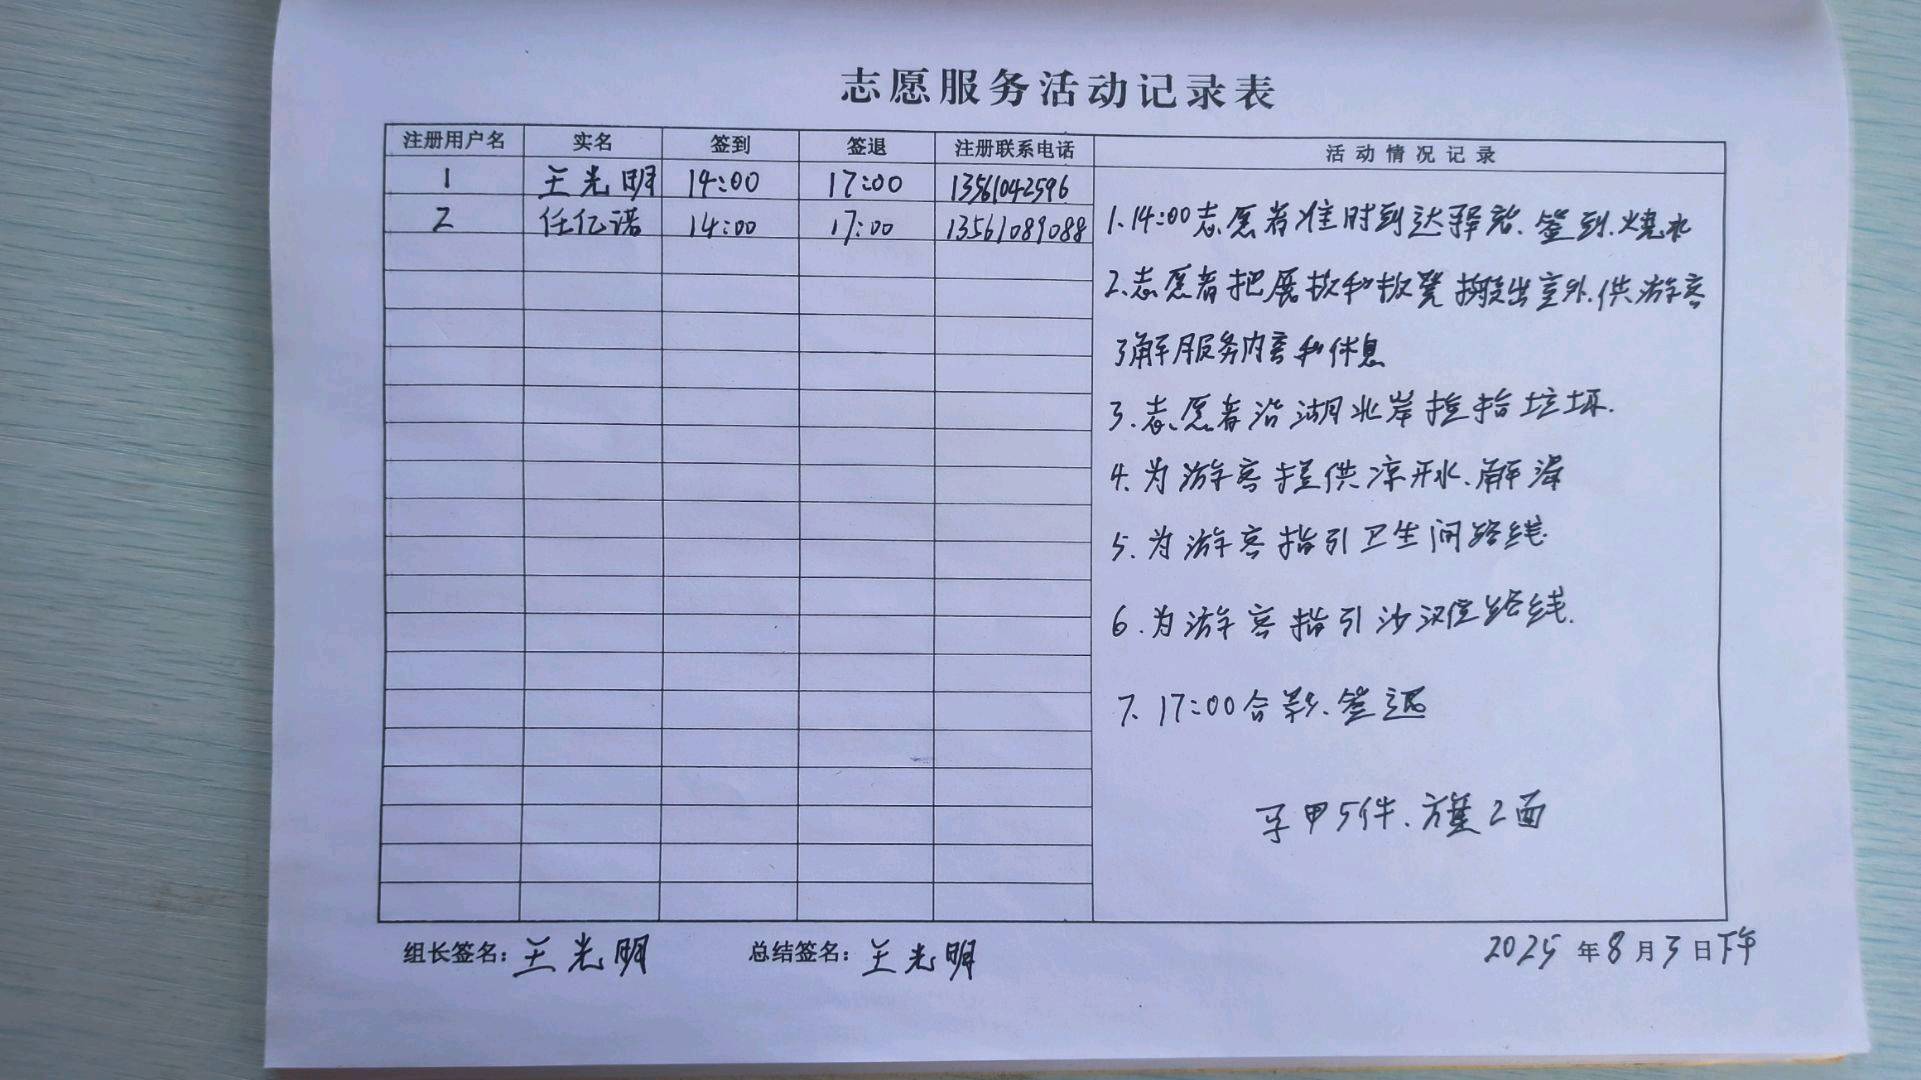 志愿服务活动记录表
注册用户名 实名 签到 签退 注册联系电话 活动情况记录
1 王光明 14:00 17:00 13561042596
2 任亿诺 14:00 17:00 13561089088
1.14:00志愿者准时到达驿站.签到.烧水
2.志愿者把展板和板凳搬出室外.供游客
了解服务内容和休息
3.志愿者沿湖北岸捡拾垃圾.
4.为游客提供凉开水.解渴
5.为游客指引卫生间路线.
6.为游客指引沙滩路线.
7.17:00合影.签退
马甲5件.旗2面
组长签名:王光明 总结签名:王光明 2025年8月3日下午